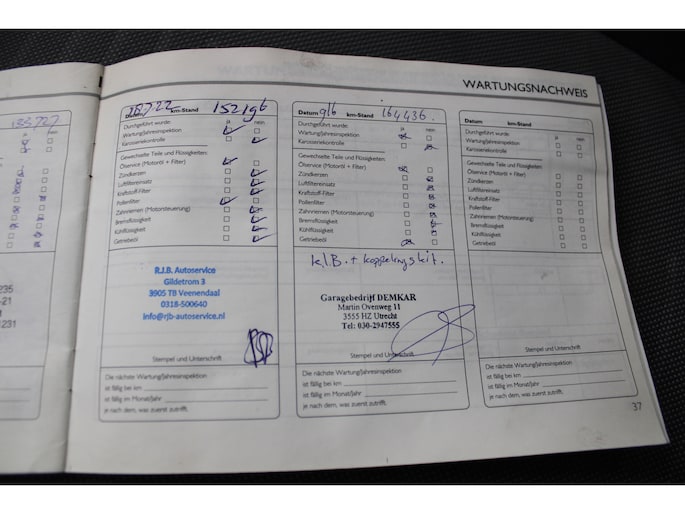 WARTUNGSNACHWEIS
133727
nein
235
-21
1
1231
km-Stand 152196
Durchgeführt wurde: ja nein
Wartung/Jahresinspektion
Karosseriekontrolle
Gewechselte Teile und Flüssigkeiten:
Ölservice (Motoröl + Filter)
Zündkerzen
Luftfiltereinsatz
Kraftstoff-Filter
Pollenfilter
Zahnriemen (Motorsteuerung)
Bremsflüssigkeit
Kühlflüssigkeit
Getriebeöl
R.J.B. Autoservice
Gildetrom 3
3905 TB Veenendaal
0318-500640
info@rjb-autoservice.nl
Stempel und Unterschrift
Die nächste Wartung/Jahresinspektion
ist fällig bei km
ist fällig im Monat/Jahr
je nach dem, was zuerst zutrifft.
Datum 9/6 km-Stand 164436.
Durchgeführt wurde: ja nein
Wartung/Jahresinspektion
Karosseriekontrolle
Gewechselte Teile und Flüssigkeiten:
Ölservice (Motoröl + Filter)
Zündkerzen
Luftfiltereinsatz
Kraftstoff-Filter
Pollenfilter
Zahnriemen (Motorsteuerung)
Bremsflüssigkeit
Kühlflüssigkeit
Getriebeöl
k.l.B. + koppelingskit.
Garagebedrijf DEMKAR
Martin Ovenweg 11
3555 HZ Utrecht
Tel: 030-2947555
Stempel und Unterschrift
Die nächste Wartung/Jahresinspektion
ist fällig bei km
ist fällig im Monat/Jahr
je nach dem, was zuerst zutrifft.
Datum km-Stand
Durchgeführt wurde: ja nein
Wartung/Jahresinspektion
Karosseriekontrolle
Gewechselte Teile und Flüssigkeiten:
Ölservice (Motoröl + Filter)
Zündkerzen
Luftfiltereinsatz
Kraftstoff-Filter
Pollenfilter
Zahnriemen (Motorsteuerung)
Bremsflüssigkeit
Kühlflüssigkeit
Getriebeöl
Stempel und Unterschrift
Die nächste Wartung/Jahresinspektion
ist fällig bei km
ist fällig im Monat/Jahr
je nach dem, was zuerst zutrifft.
37